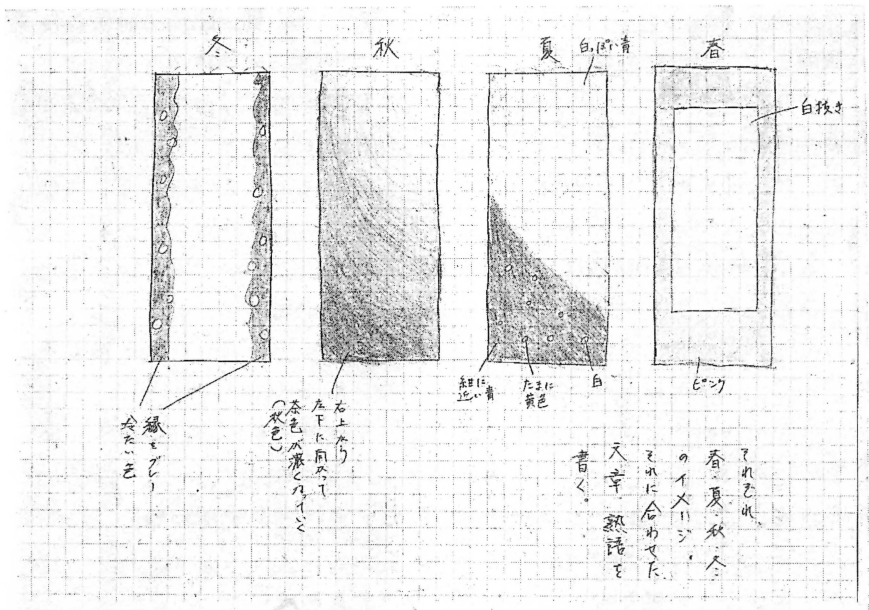 春
白抜き
ピンク
夏
白っぽい青
紺に
近い青
たまに
黄色
白
秋
右上から
左下に向かって
茶色が濃くなっていく
(秋色)
冬
縁をグレー
冷たい色
それぞれ、
春・夏・秋・冬
のイメージ。
それに合わせた
文章、熟語を
書く。